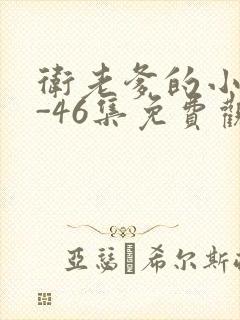 衛老爹的小
-46集免費觀
亞瑟�希尔斯